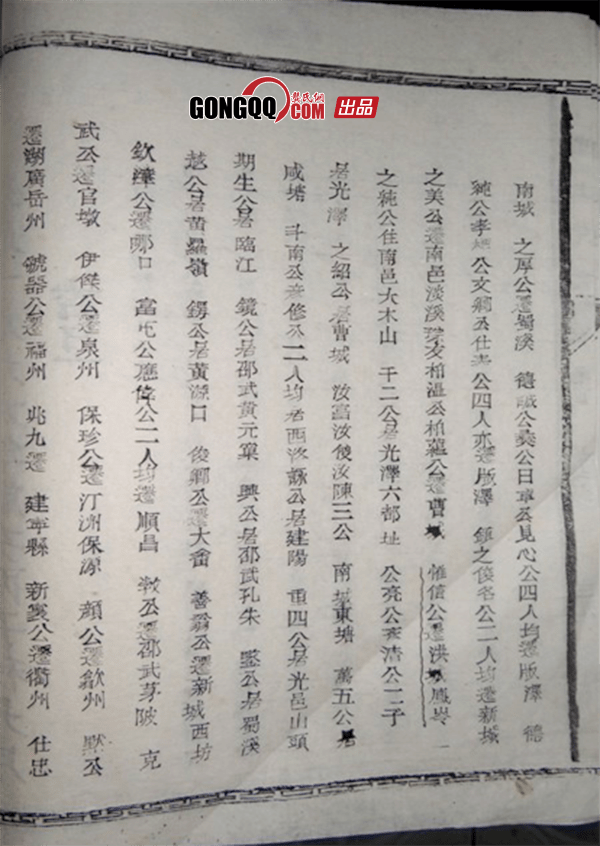 GONGQQ.COM 龚氏網 出品
南城 之厚公遷蜀溪 德 公 公日 公見心公四人均遷版澤 德
純公孝 公文綱公仕 公四人亦遷版澤 鎮之俊名公二人均遷新城
之美公遷南邑淡溪 友柏溫公柏蘊公遷曹城 惟信公遷洪城
之純公住南邑大木山 千二公居光澤六都址 公亮公 清公二子
居光澤 之紹公居曹城 汝富汝俊汝陳三公 南城東塘 萬五公居
咸塘 斗南公 修公二人均居西 公居建陽 重四公居光邑山頭
期生公居臨江 鏡公居邵武黄元窠 興公居邵武孔朱 公居蜀溪
越公居黄羅嶺 鍔公居黄源口 俊卿公遷大 善翁公遷新城西坊
欽 公遷 口 當屯公應 公二人均遷順昌 公遷邵武芽陂 克
武公遷官墩 伊傑公遷泉州 保珍公遷汀洲保源 顔公遷歙州 默公
遷湖廣岳州 號器公遷福州 兆九遷 建寧縣 新 公遷衢州 仕忠